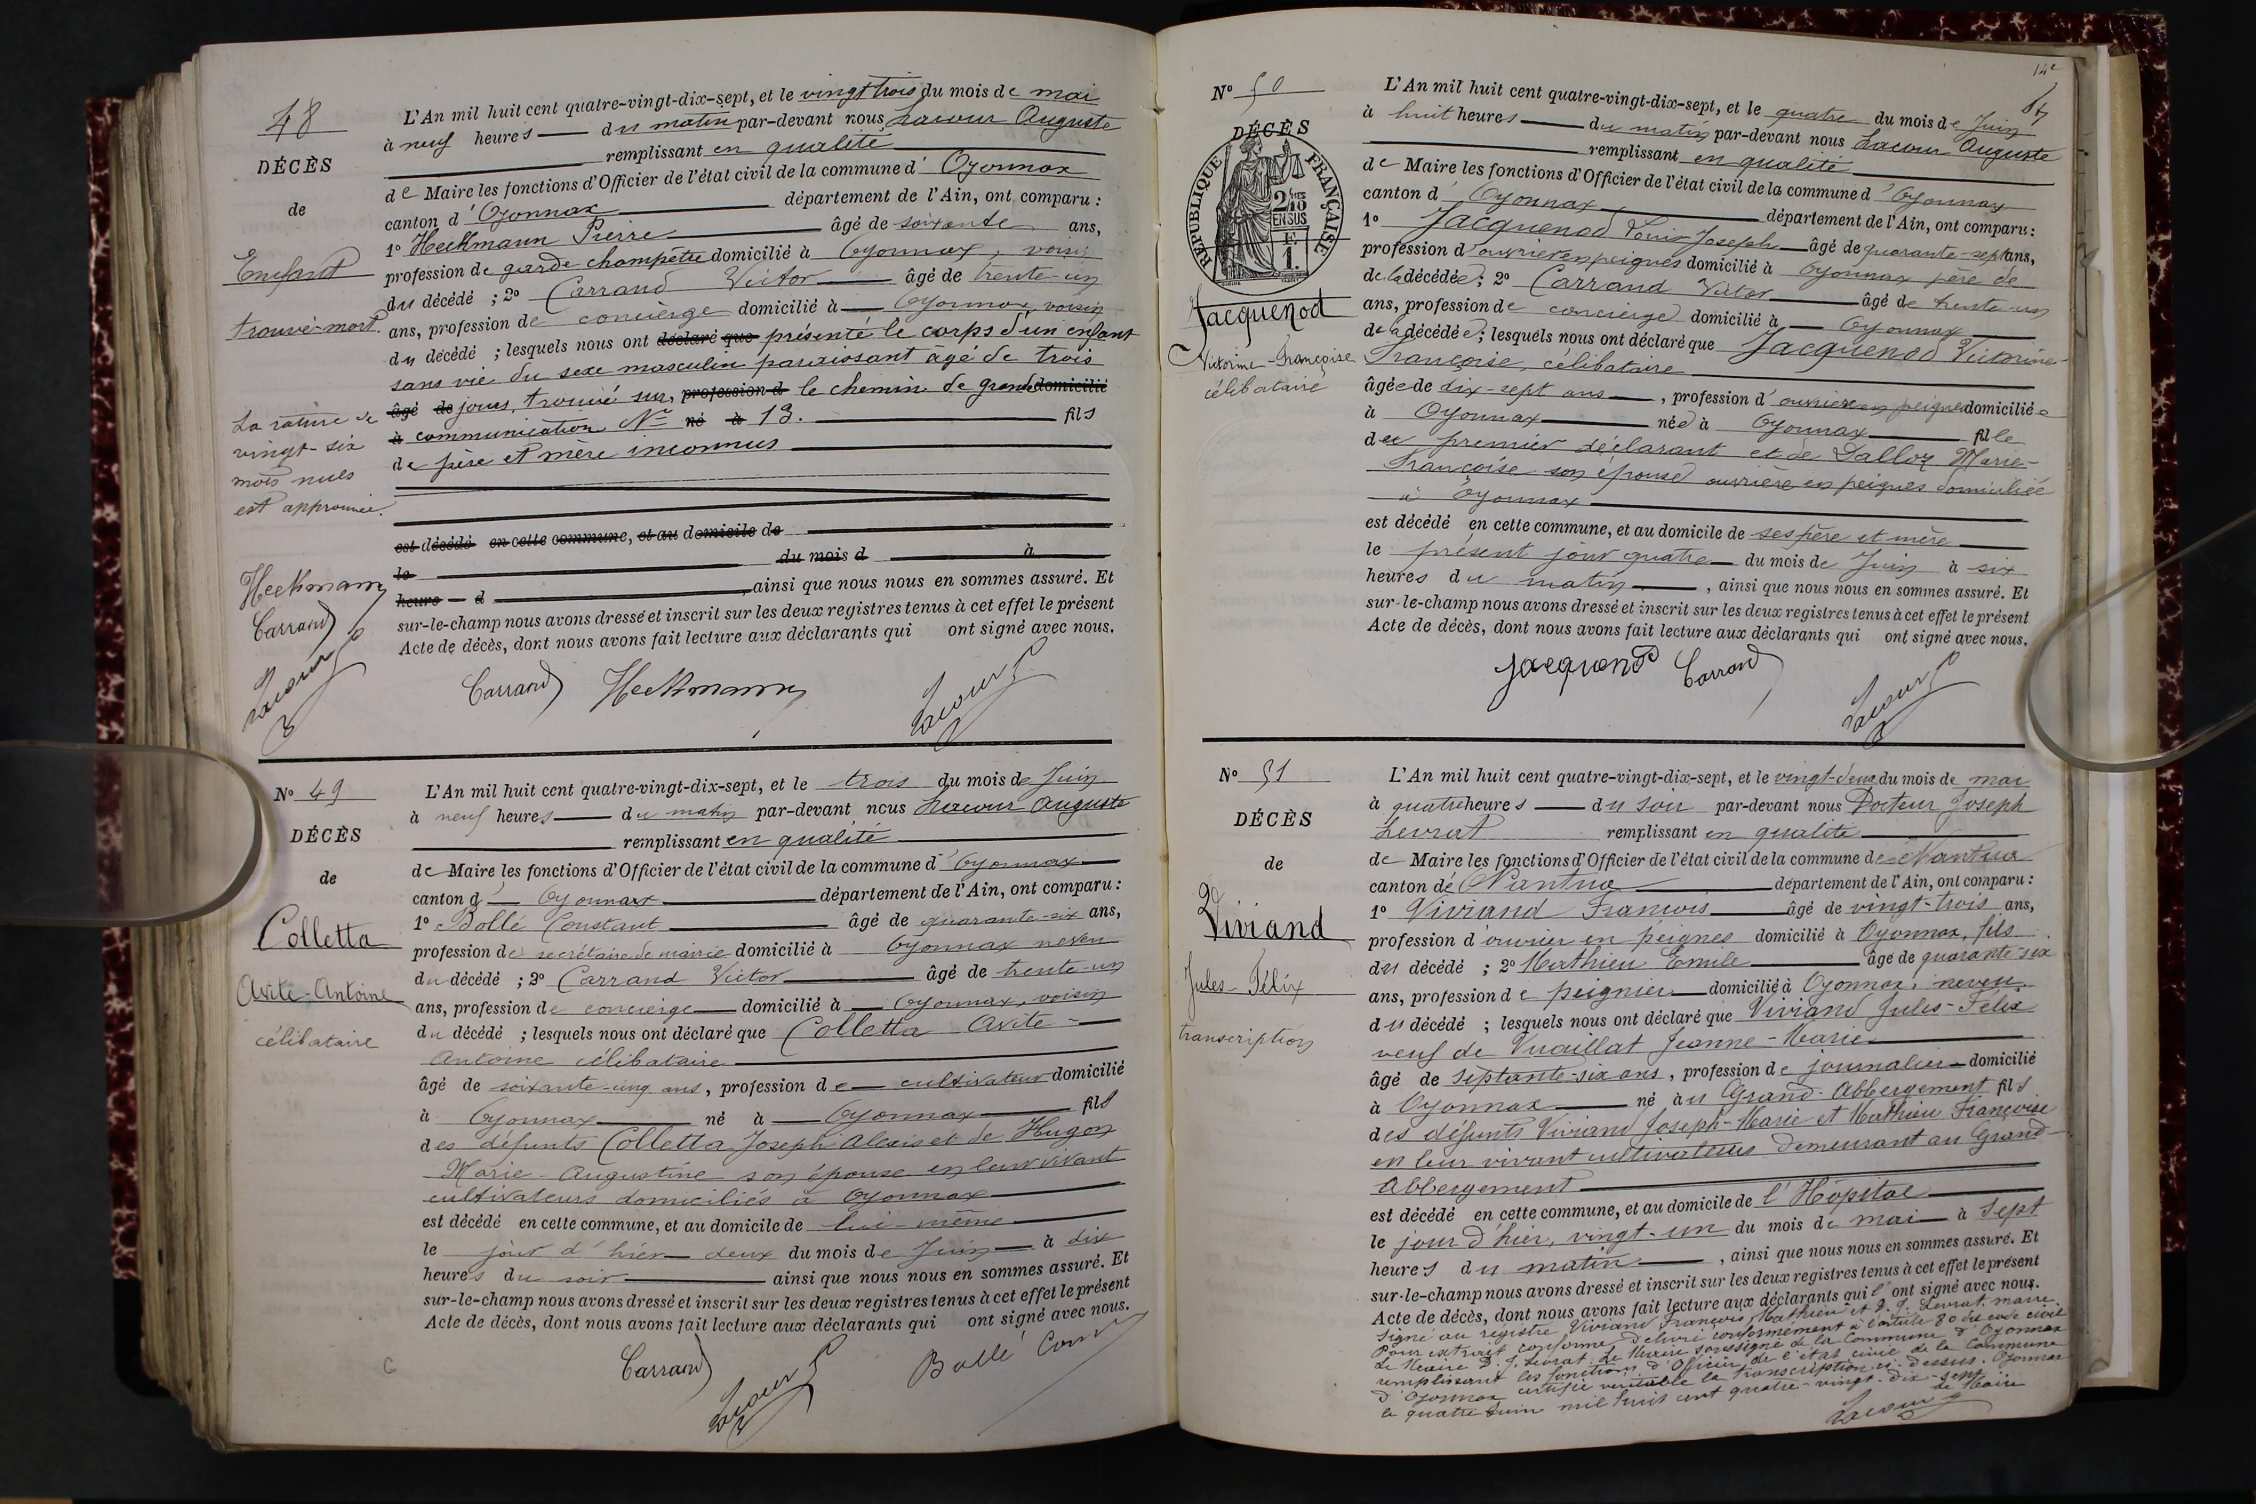 48
DÉCÈS
de
Enfant
trouvé-mort.
La rature de
vingt-six
mots nuls
est approuvée.
Heckmann
Carrand
Lacour
L'An mil huit cent quatre-vingt-dix-sept, et le vingt trois du mois de mai
à neuf heures du matin par-devant nous Lacour Auguste
remplissant en qualité
de Maire les fonctions d'Officier de l'état civil de la commune d' Oyonnax
canton d' Oyonnax département de l'Ain, ont comparu :
1º Heckmann Pierre âgé de soixante ans,
profession de garde champêtre domicilié à Oyonnax, voisin
du décédé ; 2º Carrand Victor âgé de trente-un
ans, profession de concierge domicilié à Oyonnax, voisin
du décédé ; lesquels nous ont déclaré que présenté le corps d'un enfant
sans vie du sexe masculin paraissant âgé de trois
âgé de jours, trouvé sur, profession d le chemin de grande domicilié
à communication Nº né à 13. fils
de père et mère inconnus
est décédé en cette commune, et au domicile de
le du mois d à
heure d , ainsi que nous nous en sommes assuré. Et
sur-le-champ nous avons dressé et inscrit sur les deux registres tenus à cet effet le présent
Acte de décès, dont nous avons fait lecture aux déclarants qui ont signé avec nous.
Carrand Heckmann Lacour
Nº 49
DÉCÈS
de
Colletta
Avite-Antoine
célibataire
L'An mil huit cent quatre-vingt-dix-sept, et le trois du mois de Juin
à neuf heures du matin par-devant nous Lacour Auguste
remplissant en qualité
de Maire les fonctions d'Officier de l'état civil de la commune d' Oyonnax
canton d' Oyonnax département de l'Ain, ont comparu :
1º Bollé Constant âgé de quarante-six ans,
profession de secrétaire de mairie domicilié à Oyonnax neveu
du décédé ; 2º Carrand Victor âgé de trente-un
ans, profession de concierge domicilié à Oyonnax, voisin
du décédé ; lesquels nous ont déclaré que Colletta Avite-
Antoine célibataire
âgé de soixante-cinq ans, profession de cultivateur domicilié
à Oyonnax né à Oyonnax fils
des défunts Colletta Joseph Alexis et de Hugon
Marie-Augustine son épouse en leur vivant
cultivateurs domiciliés à Oyonnax
est décédé en cette commune, et au domicile de lui-même
le jour d'hier deux du mois de Juin à dix
heures du soir ainsi que nous nous en sommes assuré. Et
sur-le-champ nous avons dressé et inscrit sur les deux registres tenus à cet effet le présent
Acte de décès, dont nous avons fait lecture aux déclarants qui ont signé avec nous.
Carrand Lacour Bollé Const
Nº 50
DÉCÈS
RÉPUBLIQUE FRANÇAISE
2/10 EN SUS
F. 1.
Jacquenod
Victorine-Françoise
célibataire
L'An mil huit cent quatre-vingt-dix-sept, et le quatre du mois de Juin
à huit heures du matin par-devant nous Lacour Auguste
remplissant en qualité
de Maire les fonctions d'Officier de l'état civil de la commune d' Oyonnax
canton d' Oyonnax département de l'Ain, ont comparu :
1º Jacquenod Louis Joseph âgé de quarante-sept ans,
profession d'ouvrier en peignes domicilié à Oyonnax père de
de la décédée ; 2º Carrand Victor âgé de trente-un
ans, profession de concierge domicilié à Oyonnax
de la décédée ; lesquels nous ont déclaré que Jacquenod Victorine-
Françoise, célibataire
âgée de dix-sept ans , profession d'ouvrière en peignes domiciliée
à Oyonnax née à Oyonnax fille
du premier déclarant et de Dalloz Marie-
Françoise son épouse ouvrière en peignes domiciliée
à Oyonnax
est décédé en cette commune, et au domicile de ses père et mère
le présent jour quatre du mois de Juin à six
heures du matin , ainsi que nous nous en sommes assuré. Et
sur-le-champ nous avons dressé et inscrit sur les deux registres tenus à cet effet le présent
Acte de décès, dont nous avons fait lecture aux déclarants qui ont signé avec nous.
Jacquenod Carrand Lacour
Nº 51
DÉCÈS
de
Viviand
Jules-Félix
transcription
L'An mil huit cent quatre-vingt-dix-sept, et le vingt-deux du mois de mai
à quatre heures du soir par-devant nous Docteur Joseph
Levrat remplissant en qualité
de Maire les fonctions d'Officier de l'état civil de la commune de Nantua
canton de Nantua département de l'Ain, ont comparu :
1º Viviand François âgé de vingt-trois ans,
profession d'ouvrier en peignes domicilié à Oyonnax, fils
du décédé ; 2º Mathieu Emile âgé de quarante-six
ans, profession de peignier domicilié à Oyonnax, neveu
du décédé ; lesquels nous ont déclaré que Viviand Jules-Félix
veuf de Vuaillat Jeanne-Marie
âgé de septante-six ans, profession de journalier domicilié
à Oyonnax né au Grand-Abbergement fils
des défunts Viviand Joseph-Marie et Mathieu Françoise
en leur vivant cultivateurs demeurant au Grand-
Abbergement
est décédé en cette commune, et au domicile de l'Hôpital
le jour d'hier, vingt-un du mois de mai à sept
heures du matin , ainsi que nous nous en sommes assuré. Et
sur-le-champ nous avons dressé et inscrit sur les deux registres tenus à cet effet le présent
Acte de décès, dont nous avons fait lecture aux déclarants qui ont signé avec nous.
Signé au registre Viviand François Mathieu et D. J. Levrat, maire.
Pour extrait conforme délivré conformément à l'article 80 du code civil
Le Maire D. J. Levrat. Le Maire soussigné de la Commune d'Oyonnax
remplissant les fonctions d'Officier de l'état civil de la Commune
d'Oyonnax certifie véritable la transcription ci-dessus. Oyonnax
le quatre Juin mil huit cent quatre-vingt-dix-sept
le Maire
Lacour